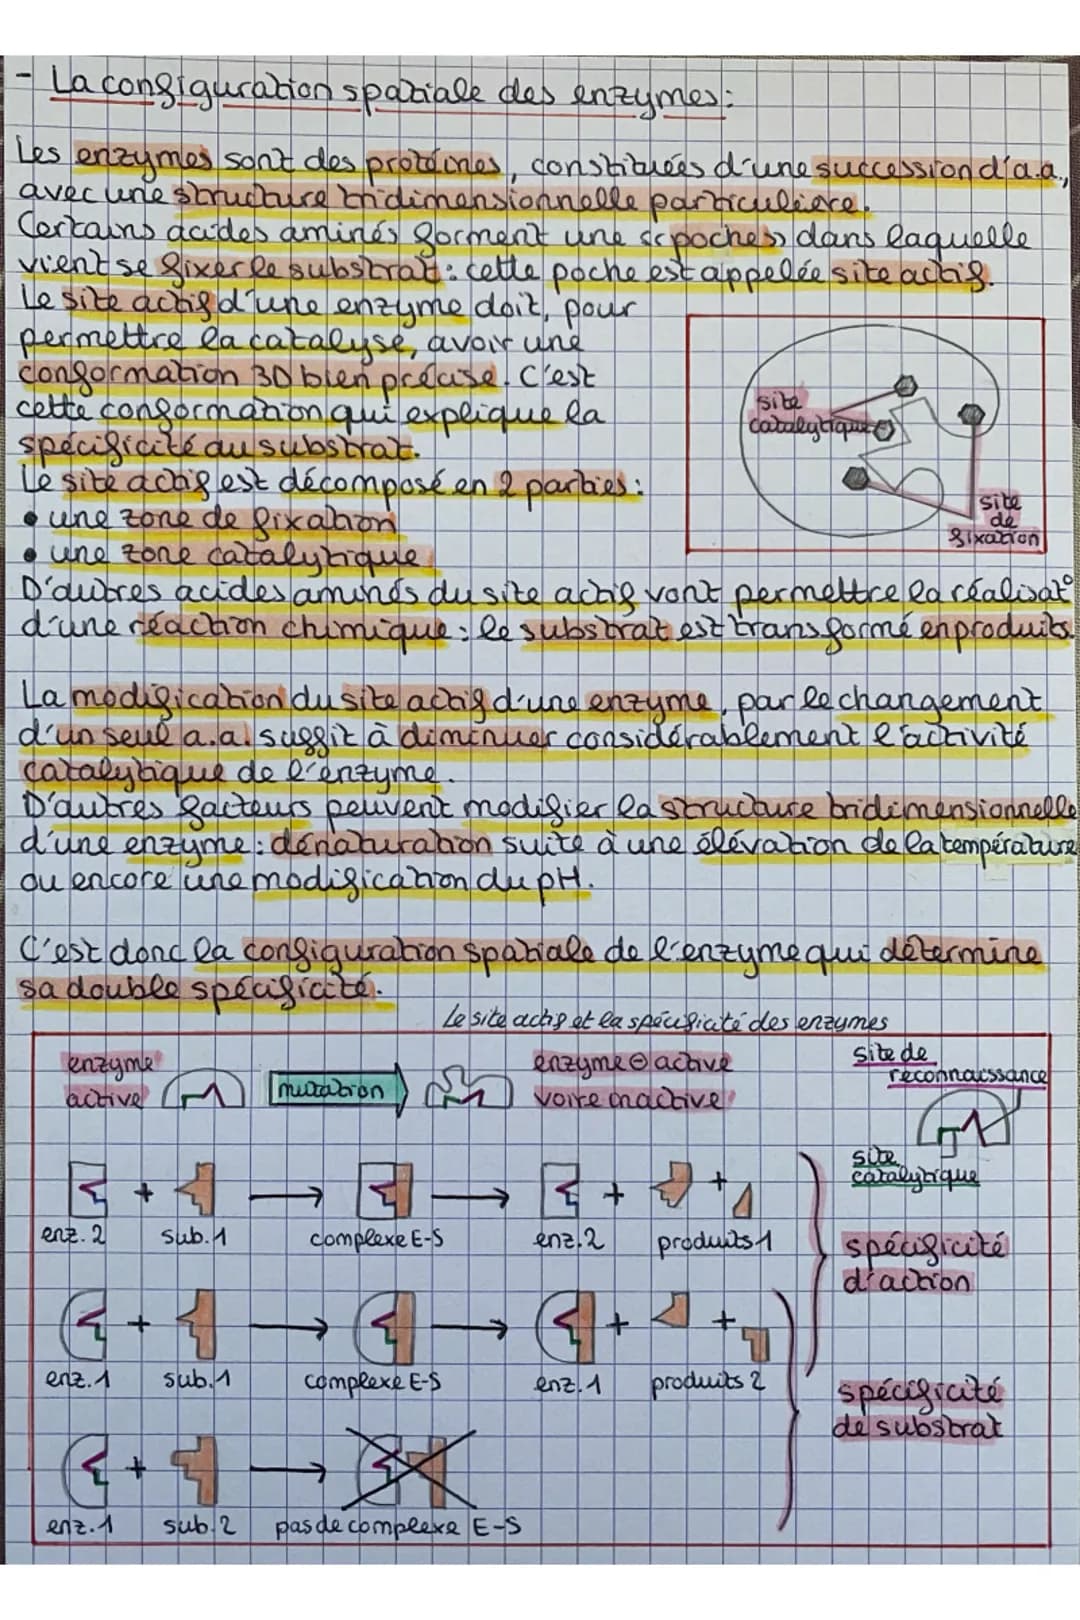 - La configuration spatiale des enzymes :
Les enzymes sont des protéines, constituées d'une succession d'a.a.,
avec une structure tridimensionnelle particulière.
Certains acides aminés forment une « poche » dans laquelle
vient se fixer le substrat : cette poche est appelée site actif.
Le site actif d'une enzyme doit, pour
permettre la catalyse, avoir une
conformation 3D bien précise. C'est
cette conformation qui explique la
spécificité au substrat.
Le site actif est décomposé en 2 parties :
• une zone de fixation
• une zone catalytique
site
catalytique
site
de
fixation
D'autres acides aminés du site actif vont permettre la réalisat°
d'une réaction chimique : le substrat est transformé en produits.
La modification du site actif d'une enzyme, par le changement
d'un seul a.a. suffit à diminuer considérablement l'activité
catalytique de l'enzyme.
D'autres facteurs peuvent modifier la structure tridimensionnelle
d'une enzyme : dénaturation suite à une élévation de la température
ou encore une modification du pH.
C'est donc la configuration spatiale de l'enzyme qui détermine
sa double spécificité.
Le site actif et la spécificité des enzymes
enzyme
active
mutation
enzyme ⊖ active
voire inactive
site de
reconnaissance
site
catalytique
+ +
+
enz. 2 sub. 1 complexe E-S enz. 2 produits 1
spécificité
d'action
+ + +
enz. 1 sub. 1 complexe E-S enz. 1 produits 2
spécificité
de substrat
+
enz. 1 sub. 2 pas de complexe E-S